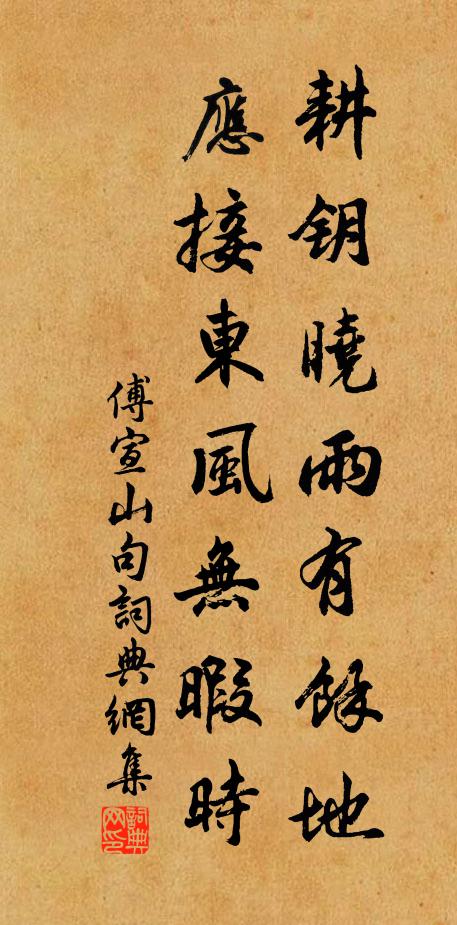 耕钥曉雨有餘地
應接東風無暇時
傅宣山句詞典網集
詞典網印